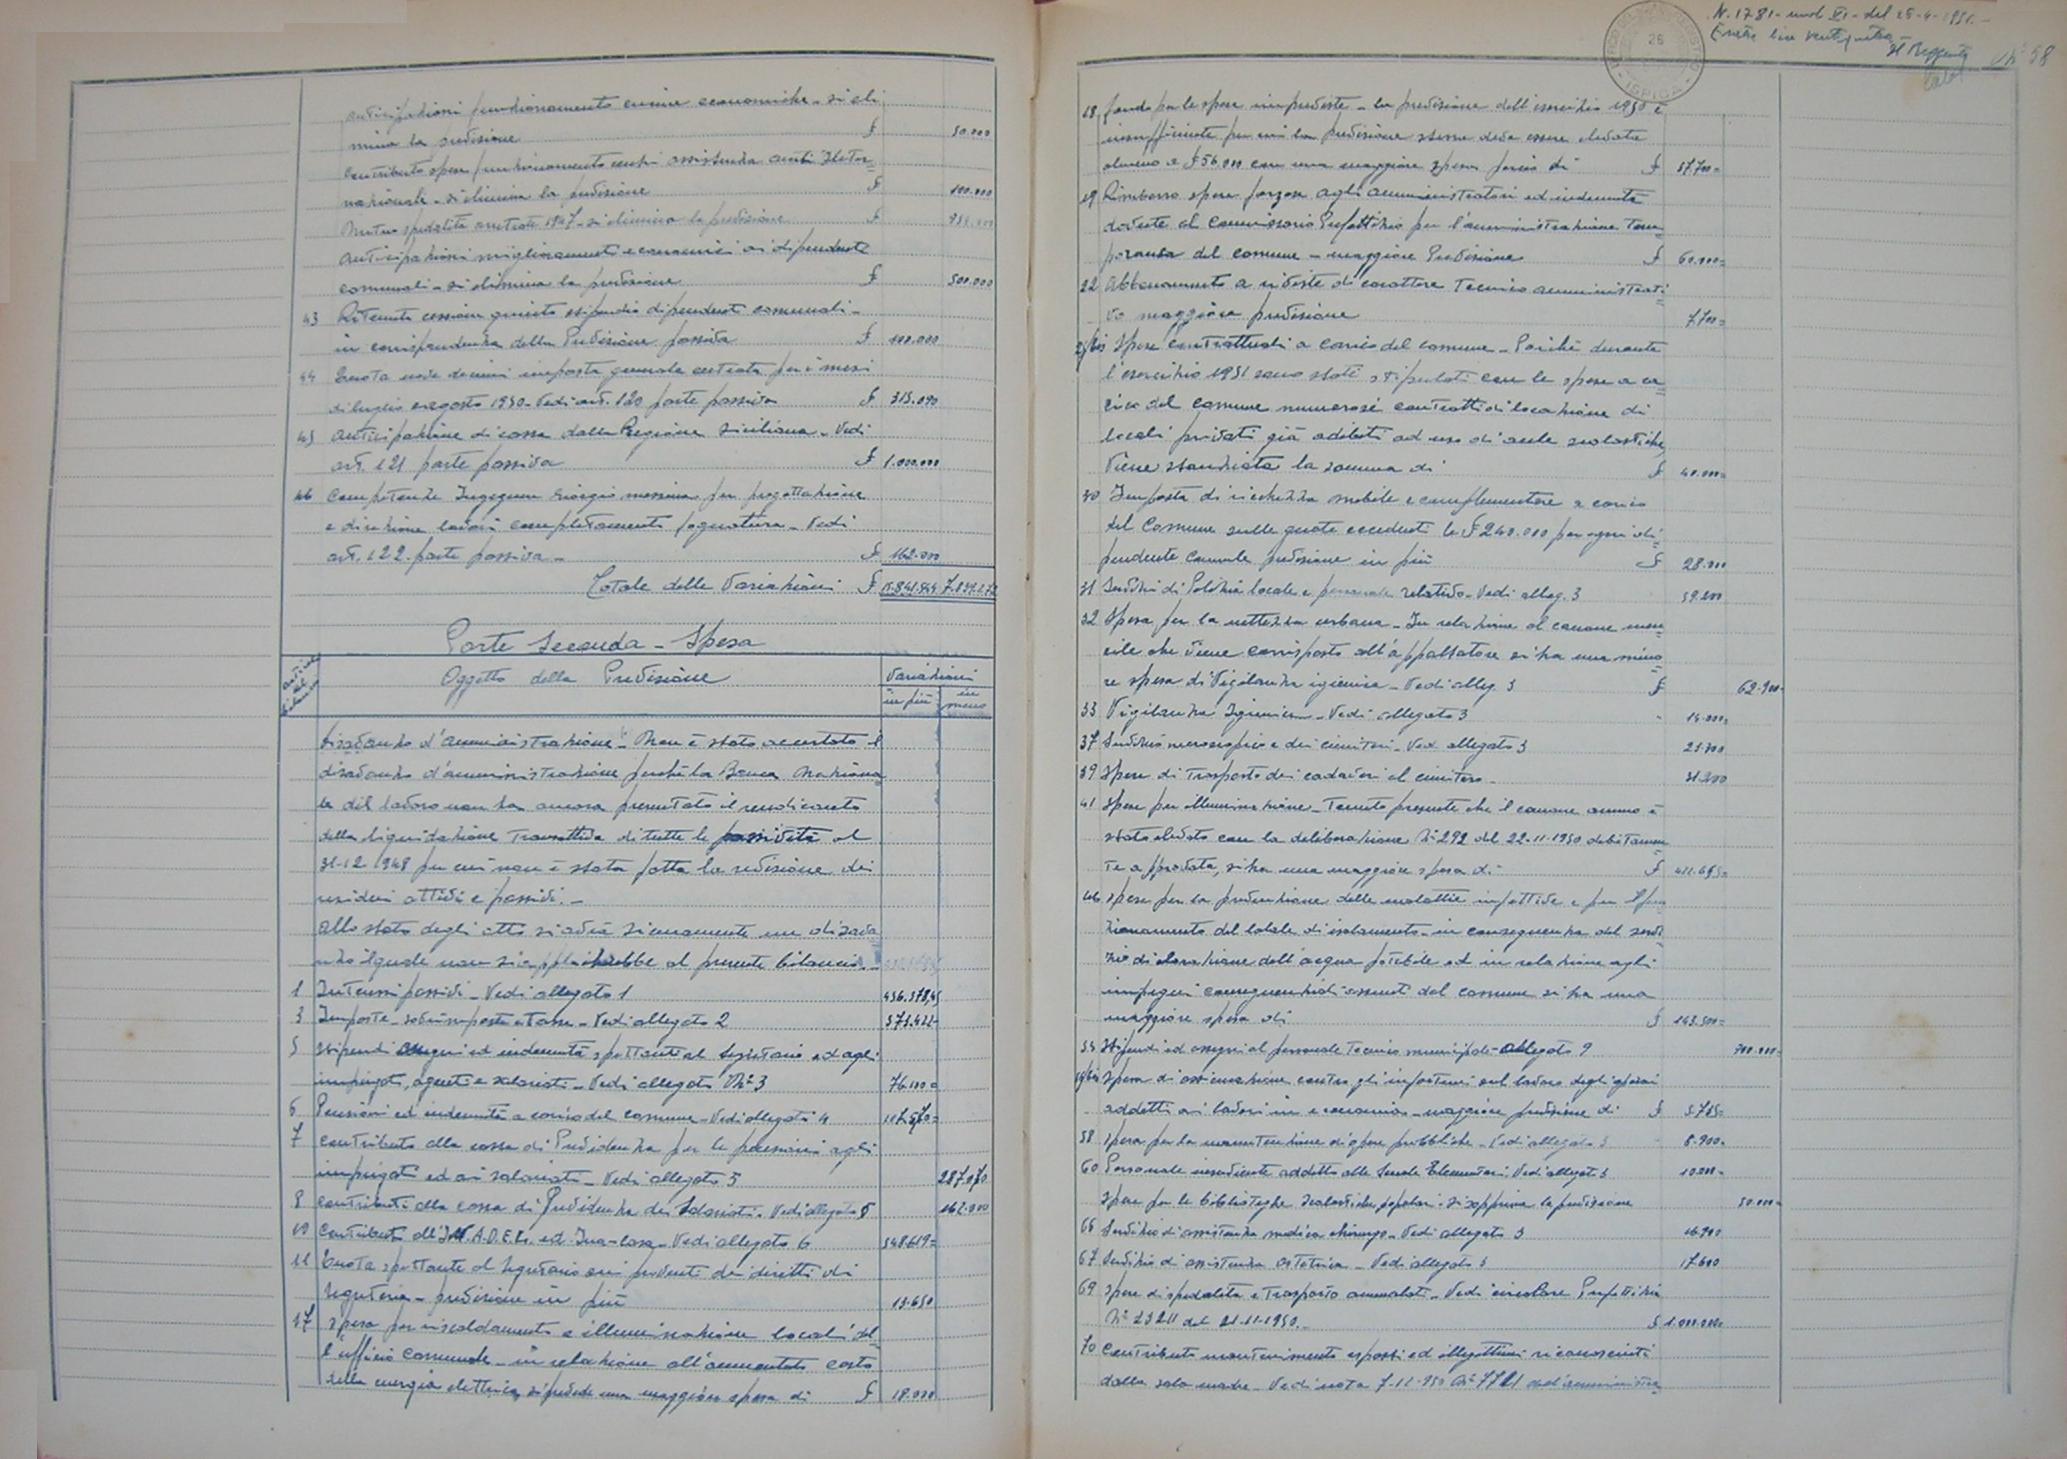 anticipazioni funzionamento cucine economiche - si eli
mina la previsione £ 50.000
Contributo spese funzionamento centri assistenza
nazionale - si elimina la previsione £ 100.000
Mutuo spedalità arretrate 1947 - si elimina la previsione £
Anticipazioni miglioramenti economici ai dipendenti
comunali - si elimina la previsione £ 500.000
43 Ritenute cessioni quinto stipendio dipendenti comunali -
in corrispondenza della Previsione passiva £ 100.000
44 Quota nove decimi imposta generale entrata per i mesi
di luglio e agosto 1950 - Vedi art. 120 parte passiva £ 315.090
45 Anticipazione di cassa dalla Regione Siciliana - Vedi
art. 121 parte passiva £ 1.000.000
46 Competenze Ingegnere Giorgio Messina per progettazione
e direzione lavori completamento fognatura - Vedi
art. 122 parte passiva - £ 162.000
Totale delle Variazioni £
Parte Seconda - Spesa
Articolo del bilancio
Oggetto della Previsione
Variazioni
in più in meno
Disavanzo d'amministrazione - Non è stato accertato il
disavanzo d'amministrazione perché la Banca Naziona
le del lavoro non ha ancora presentato il rendiconto
della liquidazione transattiva di tutte le passività al
31-12-1948 per cui non è stata fatta la revisione dei
residui attivi e passivi. -
Allo stato degli atti si avrà sicuramente un disava
nzo il quale non si applicherebbe al presente bilancio. -
1 Interessi passivi - Vedi allegato 1 436.378,45
3 Imposte - sovrimposte e Tasse - Vedi allegato 2 373.422=
5 Stipendi assegni ed indennità spettanti al Segretario ed agli
impiegati, agenti e salariati - Vedi allegato N° 3 76.100=
6 Pensioni ed indennità a carico del comune - Vedi allegati 4 107.570=
7 Contributo alla cassa di Previdenza per le pensioni agli
impiegati ed ai salariati - Vedi allegato 5 287.070
8 Contributi alla cassa di Previdenza dei Salariati - Vedi allegato 5 162.000
10 Contributi all'I.N.A.D.E.L. ed Ina-casa - Vedi allegato 6 348.619=
11 Quota spettante al Segretario sui proventi dei diritti di
segreteria - previsione in più 13.650
17 Spesa per riscaldamento e illuminazione locali del
l'ufficio Comunale - in relazione all'aumentato costo
della energia elettrica, si prevede una maggiore spesa di £ 18.000
N. 1781 - mod VI - del 26-4-1951 -
Esatte lire ventiquattro
Il Reggente
N° 58
26
ISPICA
18 Fondo per le spese impreviste - la previsione dell'esercizio 1950 è
insufficiente per cui la previsione stessa deve essere elevata
almeno a £ 56.000 con una maggiore spesa perciò di £ 37.700=
19 Rimborso spese forzose agli amministratori ed indennità
dovute al Commissario Prefettizio per l'amministrazione tem
poranea del comune - maggiore Previsione £ 60.000=
22 Abbonamento a riviste di carattere Tecnico amministrati
vo maggiore previsione 7.700=
25bis Spese contrattuali a carico del comune - Poiché durante
l'esercizio 1951 sono stati stipulati con le spese a ca
rico del comune numerosi contratti di locazione di
locali privati già adibiti ad uso di aule scolastiche,
Viene stanziata la somma di £ 40.000=
30 Imposta di ricchezza mobile e complementare a carico
del Comune sulle quote eccedenti le £ 240.000 per ogni di
pendente comunale previsione in più £ 28.000
31 Servizi di Polizia locale e personale relativo - Vedi alleg. 3 39.200
32 Spesa per la nettezza urbana - In relazione al canone men
sile che viene corrisposto all'appaltatore si ha una mino
re spesa di Vigilanza igienica - Vedi alleg. 3 £ 62.900=
33 Vigilanza Igienica - Vedi allegato 3 14.000=
37 Servizio necroscopico e dei cimiteri - Vedi allegato 3 23.700
39 Spese di trasporto dei cadaveri al cimitero - 31.200
41 Spese per illuminazione - Tenuto presente che il canone annuo è
stato elevato con la deliberazione N° 292 del 22-11-1950 debitamen
te approvata, si ha una maggiore spesa di £ 411.695=
46 Spese per la prevenzione delle malattie infettive e per il fun
zionamento del locale di isolamento - in conseguenza del servi
zio di clorazione dell'acqua potabile ed in relazione agli
impegni consequenziali assunti dal comune si ha una
maggiore spesa di £ 143.500=
55 Stipendi ed assegni al personale Tecnico municipale - allegato 9 700.000=
Spesa di assicurazione contro gli infortuni sul lavoro degli operai
addetti ai lavori in economia - maggiore previsione di £ 3.715=
58 Spesa per la manutenzione di opere pubbliche - Vedi allegato 3 8.900=
60 Personale inserviente addetto alle Scuole Elementari: Vedi allegato 3 10.000=
Spese per le biblioteche scolastiche popolari - si sopprime la previsione 50.000=
66 Servizio di assistenza medica chirurgo - Vedi allegato 3 16.900
67 Servizio di assistenza ostetrica - Vedi allegato 3 17.600
69 Spese di spedalità e trasporto ammalati - Vedi circolare Prefettizia
N° 23211 del 21-11-1950. - £ 1.000.000=
70 Contributo mantenimento esposti ed illegittimi riconosciuti
dalla sola madre - Vedi nota 7-11-950 N° 7721 dell'amministra